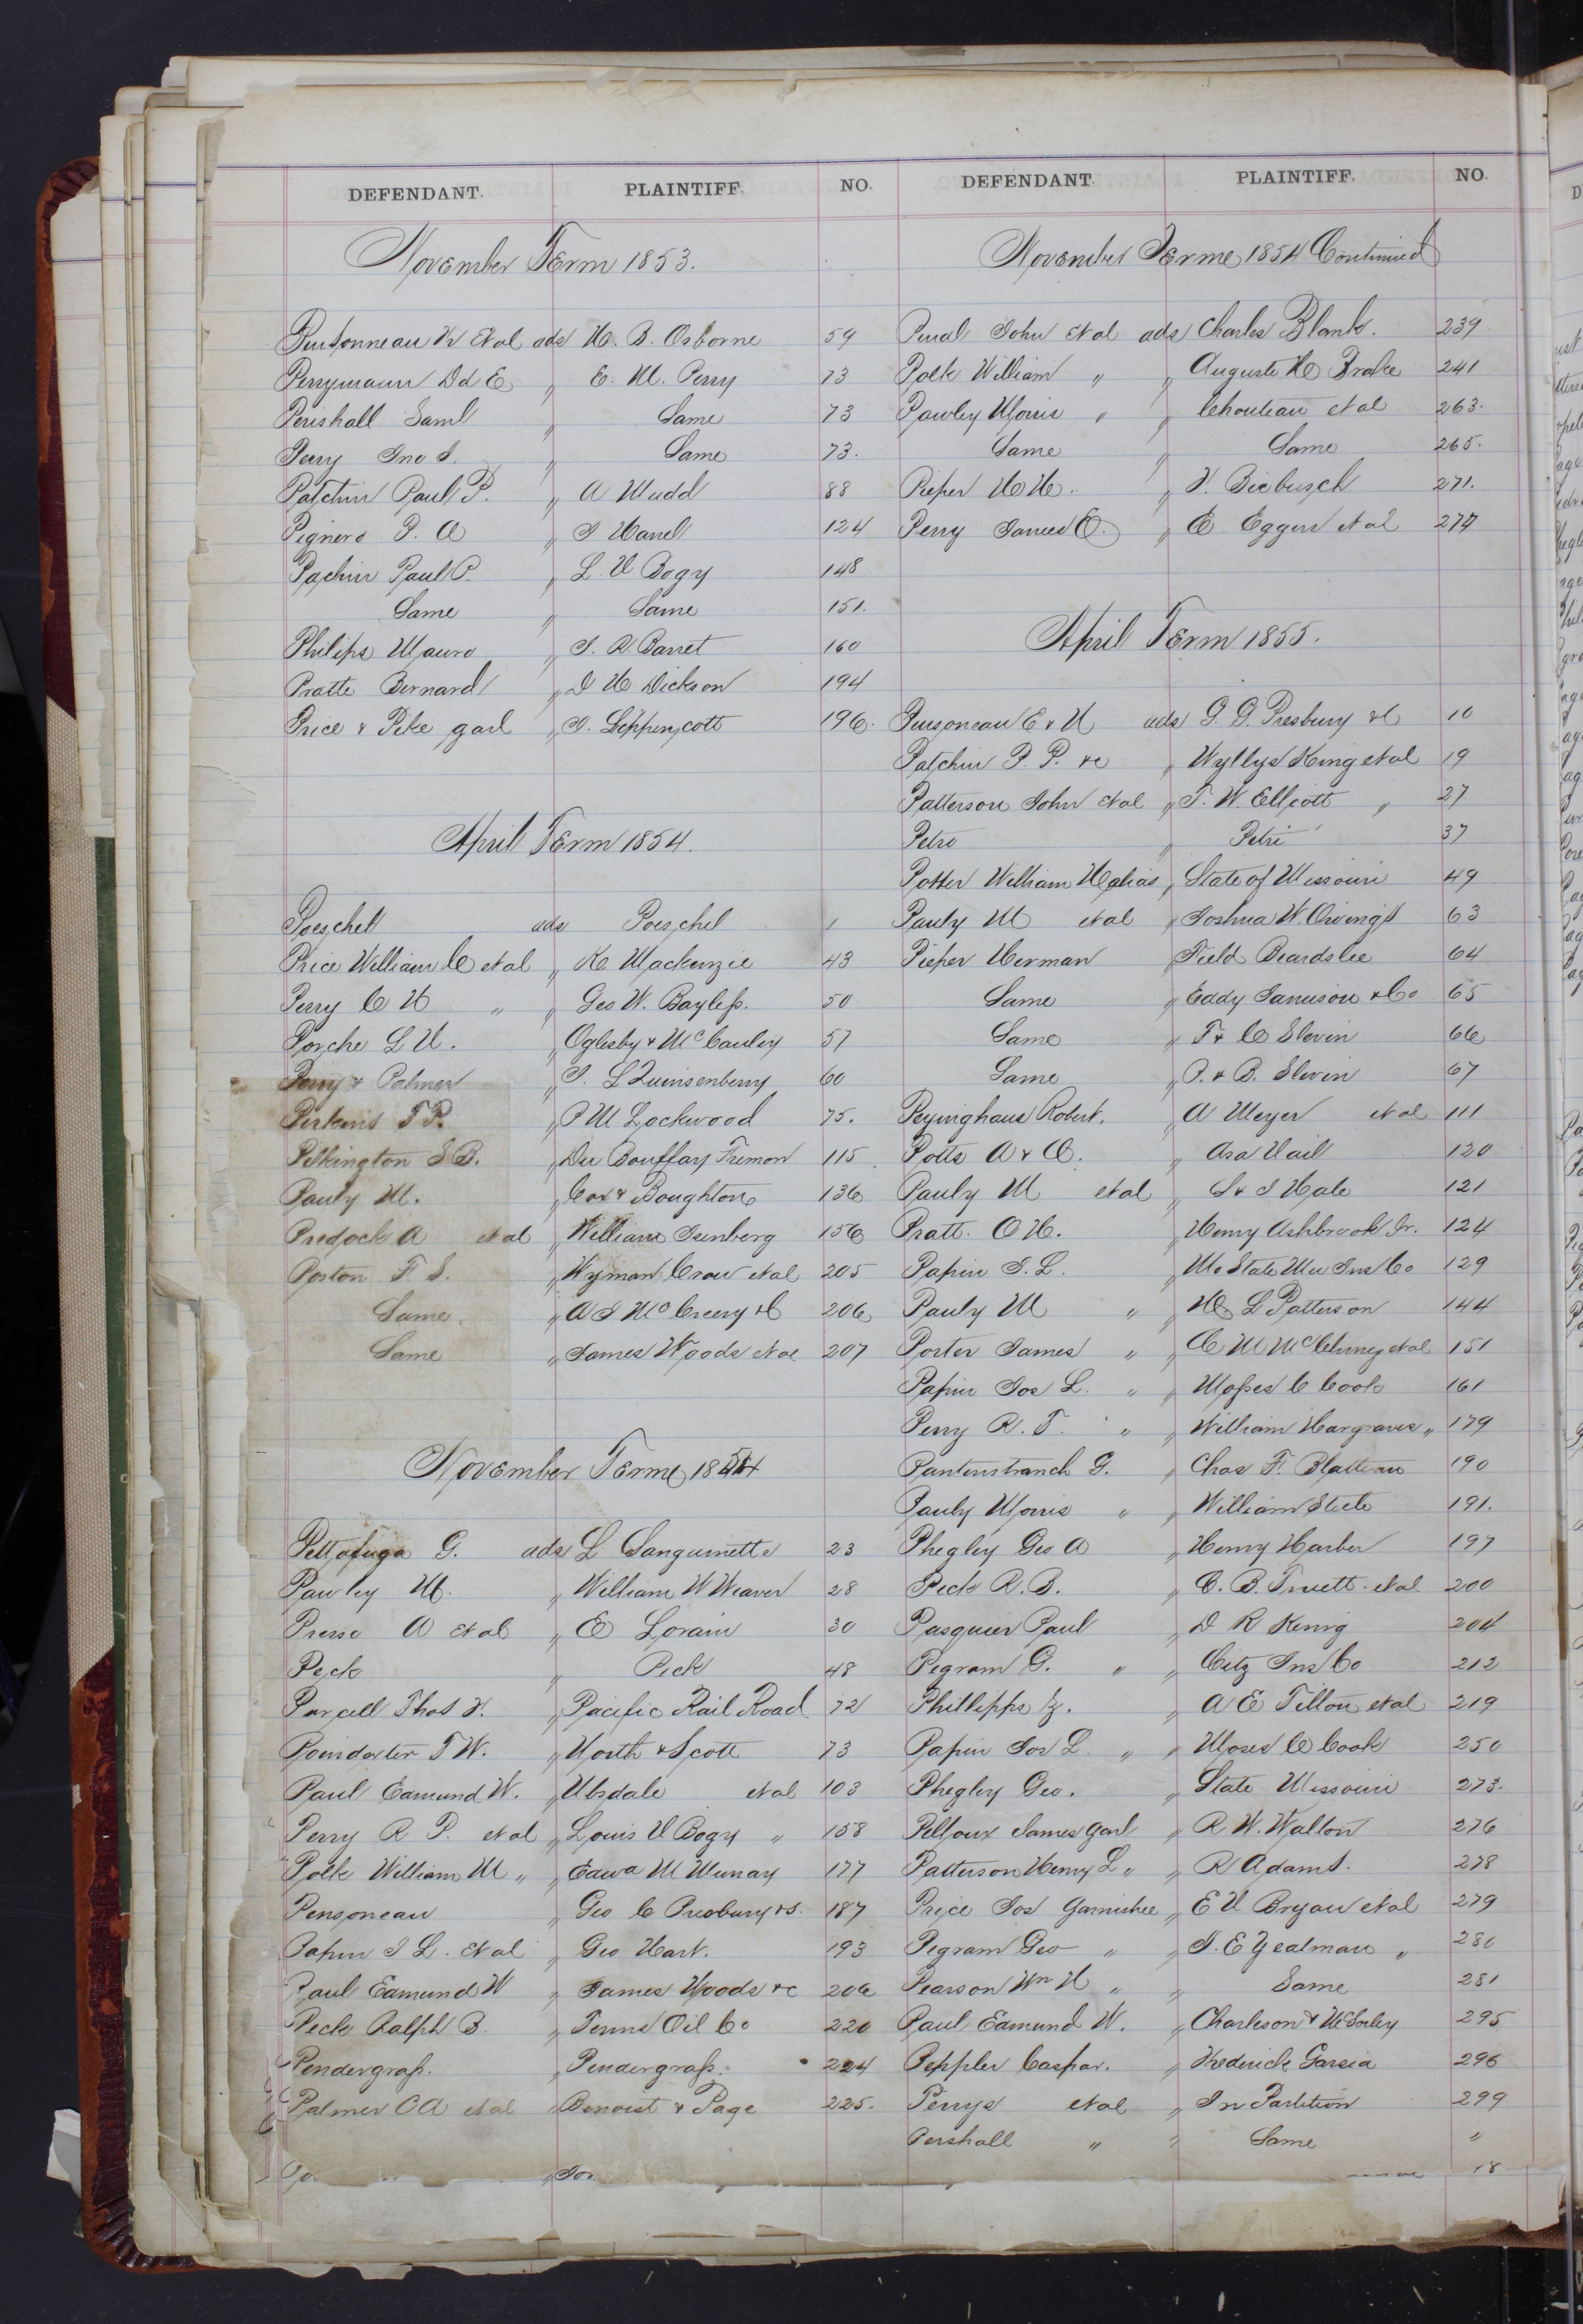 DEFENDANT. PLAINTIFF. NO.
November Term 1853.
Pensonneau N et al ads H. B. Osborne 59
Perrymann Dd E " E. M. Perry 73
Perishall Saml " Same 73
Perry Jno S. " Same 73.
Patchin Paul P. " A Mudd 88
Pignero P. A " J Hanel 124
Pachin Paul P. " L. V Bogy 148
Same " Same 151.
Philips Mauro " J. R. Barret 160
Pratte Bernard " D H Dickson 194
Price & Pike garl " J. Lippincott 196.
April Term 1854.
Poeschel ads Poeschel 1
Price William C et al " K Mackenzie 43
Perry C H " " Geo W. Bayless. 50
Porche L H. " Oglesby & McCauley 57
Perry & Palmer " J. L Quinsenberry 60
Perkins T P. " P M Lockwood 75.
Pilkington S B. " Du Bouffay Fremon 115
Pauly M. " Cox & Boughton 136
Predock A et al " William Isenberg 156
Poston F. S. " Wyman Crow et al 205
Same " A J McCreery & C 206
Same " James Woods et al 207
November Term 1854
Pettofuga G. ads L Sanguinette 23
Pawley M. " William W Weaver 28
Presse A et al " E Lorain 30
Peck " Peck 48
Purcell Thos F. " Pacific Rail Road 72
Poindexter T W. " North & Scott 73
Paul Edmund W. " Ubsdale et al 103
Perry R P. et al " Louis V Bogy " 158
Polk William M " " Edwd M Murray 177
Pensoneau " Geo C Presbury & s. 187
Papin J L. et al " Geo Hart. 193
Paul Edmund W " James Woods & c 206
Peck Ralph B " Penns Oil Co 220
Pendergrass. " Pendergrass. 224
Palmer C A et al " Benoist & Page 225.
DEFENDANT. PLAINTIFF. NO.
November Term 1854 Continued
Pend John et al ads Charles Blank. 239
Polk William " " Auguste H Brake 241
Pawley Morris " " Chouteau et al 263.
Same " Same 265.
Pieper H H. " F. Biebusch 271.
Perry James E. " E Eggers et al 277
April Term 1855.
Pensoneau E & N ads G. G. Presbury & C 10
Patchin P. P. &c " Wyllys King et al 19
Patterson John et al " T. W. Elliott " 27
Petre " Petri 37
Potter William H alias " State of Missouri 49
Pauly M et al " Joshua W. Owings 63
Pieper Herman " Field Beardslee 64
Same " Eddy Jamison & Co 65
Same " T & C Slevin 66
Same " P. & B. Slevin 67
Peyinghaus Robert. " A Meyer et al 111
Potts A & C. " Asa Vail 120
Pauly M et al " S & J Hale 121
Pratt. O H. " Henry Ashbrook Jr. 124
Papin J. L. " Mo State Mu Ins Co 129
Pauly M " " H L Patterson 144
Porter James " " C M McClurney et al 151
Papin Jos L. " " Moses C Cook 161
Perry R. T. " " William Hargraves " 179
Pantenstranch G. " Chas F. Blatteau 190
Pauly Morris " " William Steele 191.
Phegley Geo A " Henry Harber 197
Peck R. B. " C. B. Truett. et al 200
Pasquier Paul " D R Kenig 204
Pegram G. " " Citz Ins Co 212
Phillipps Z. " A E Tillou et al 219
Papin Jos L. " " Moses C Cook 250
Phegley Geo. " State Missouri 273.
Pelloux James garl " R W. Walton 276
Patterson Henry L " " R Adams. 278
Price Jos Garnishee " E V Bryan et al 279
Pegram Geo " " J. E Yealman " 280
Pearson Wm H " " Same 281
Paul Edmund W. " Charleson & McSorley 295
Peppler Caspar. " Frederick Garsia 296
Perrys et al " In Partition 299
Pershall " " Same "
18